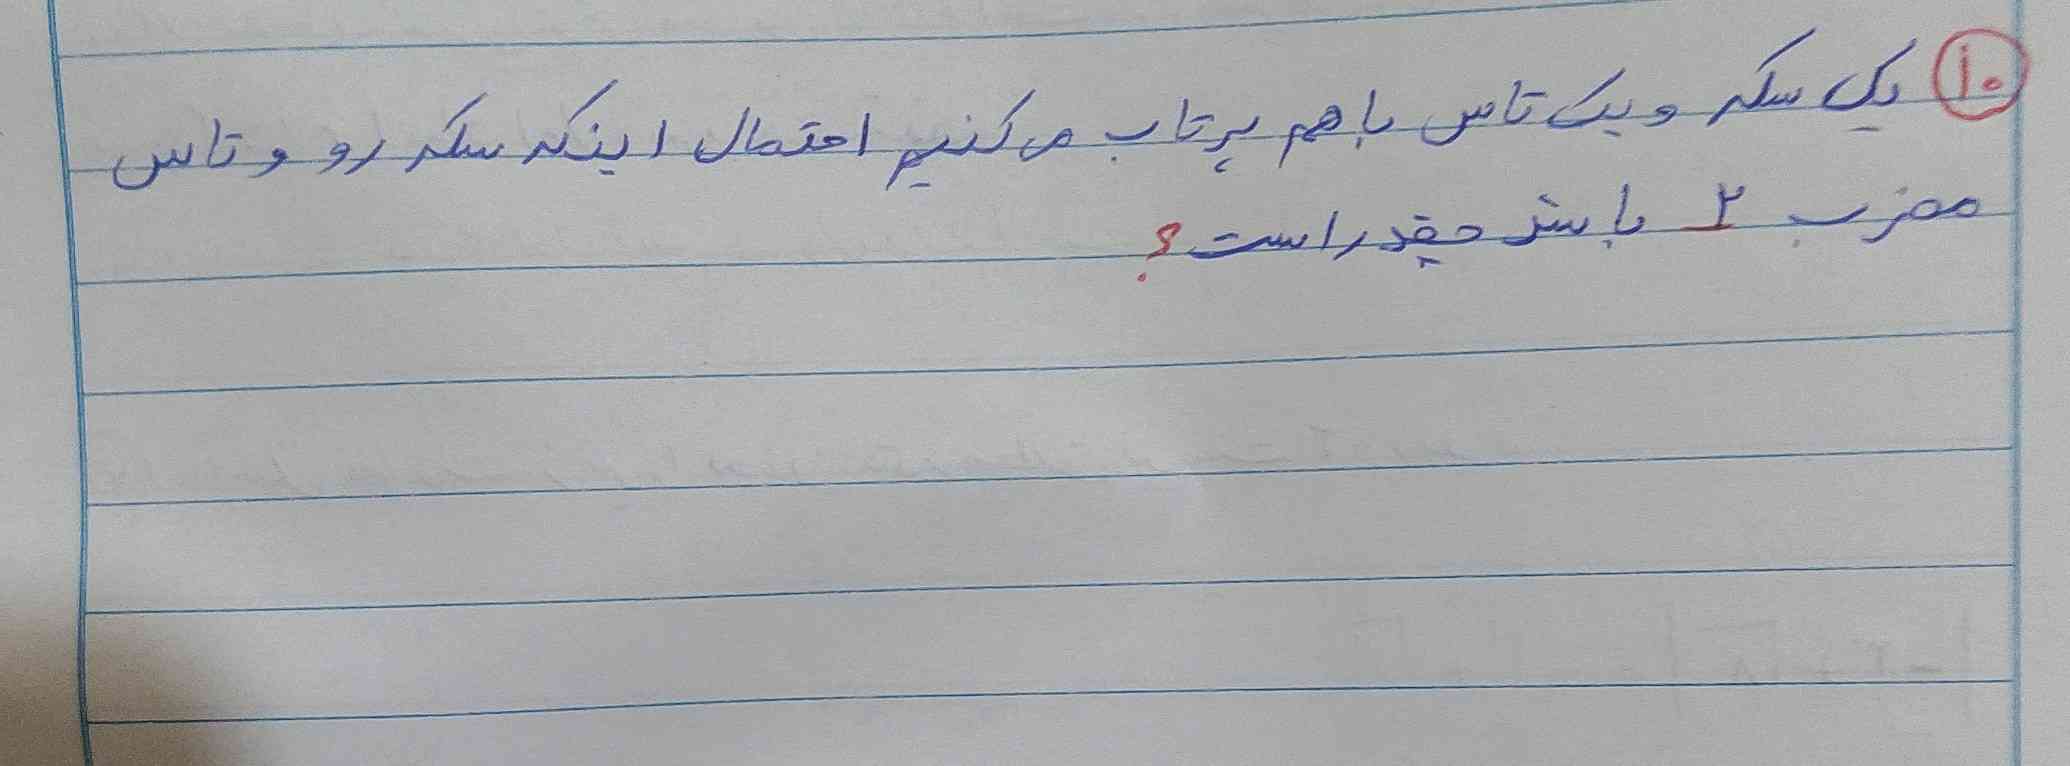 ۱۰ یک سکه و یک تاس با هم پرتاب می کنیم احتمال اینکه سکه رو و تاس
مضرب ۲ باشد چقدر است؟